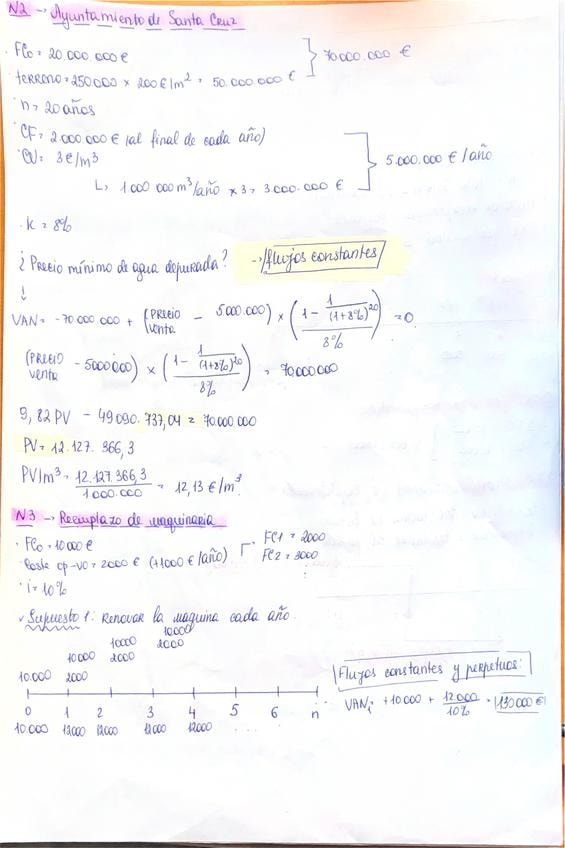 N2 → Ayuntamiento de Santa Cruz
· FC0 = 20.000.000 € } 70.000.000 €
· terreno = 250000 × 200 €/m² = 50.000.000 €
· n = 20 años
· CF = 2000000 € (al final de cada año)
· CV = 3 €/m³ } 5.000.000 € / año
L, 1000 000 m³/año × 3 = 3.000.000 €
· k = 8%
¿Precio mínimo de agua depurada? → flujos constantes
↓
VAN = -70.000.000 + (PRECIO venta - 5.000.000) × (1 - 1/(1+8%)^20 / 8%) = 0
(PRECIO venta - 5000000) × (1 - 1/(1+8%)^20 / 8%) = 70000000
9,82 PV - 49090.737,04 = 70.000.000
PV = 12.127.366,3
PV/m³ = 12.127.366,3 / 1000.000 = 12,13 €/m³
N3 → Reemplazo de maquinaria
· FC0 = 10.000 €
FC1 = 2000
· Coste op-vo = 2000 € (+1000 €/año)
FC2 = 3000
· i = 10%
✓ Supuesto 1: Renovar la maquina cada año.
10000
10000 2000
10000 2000
10.000 2000
Flujos constantes y perpetuos:
0 1 2 3 4 5 6 n
VANi = +10.000 + 12.000/10% = 130.000 €
10.000 12000 12000 12000 12000 ...